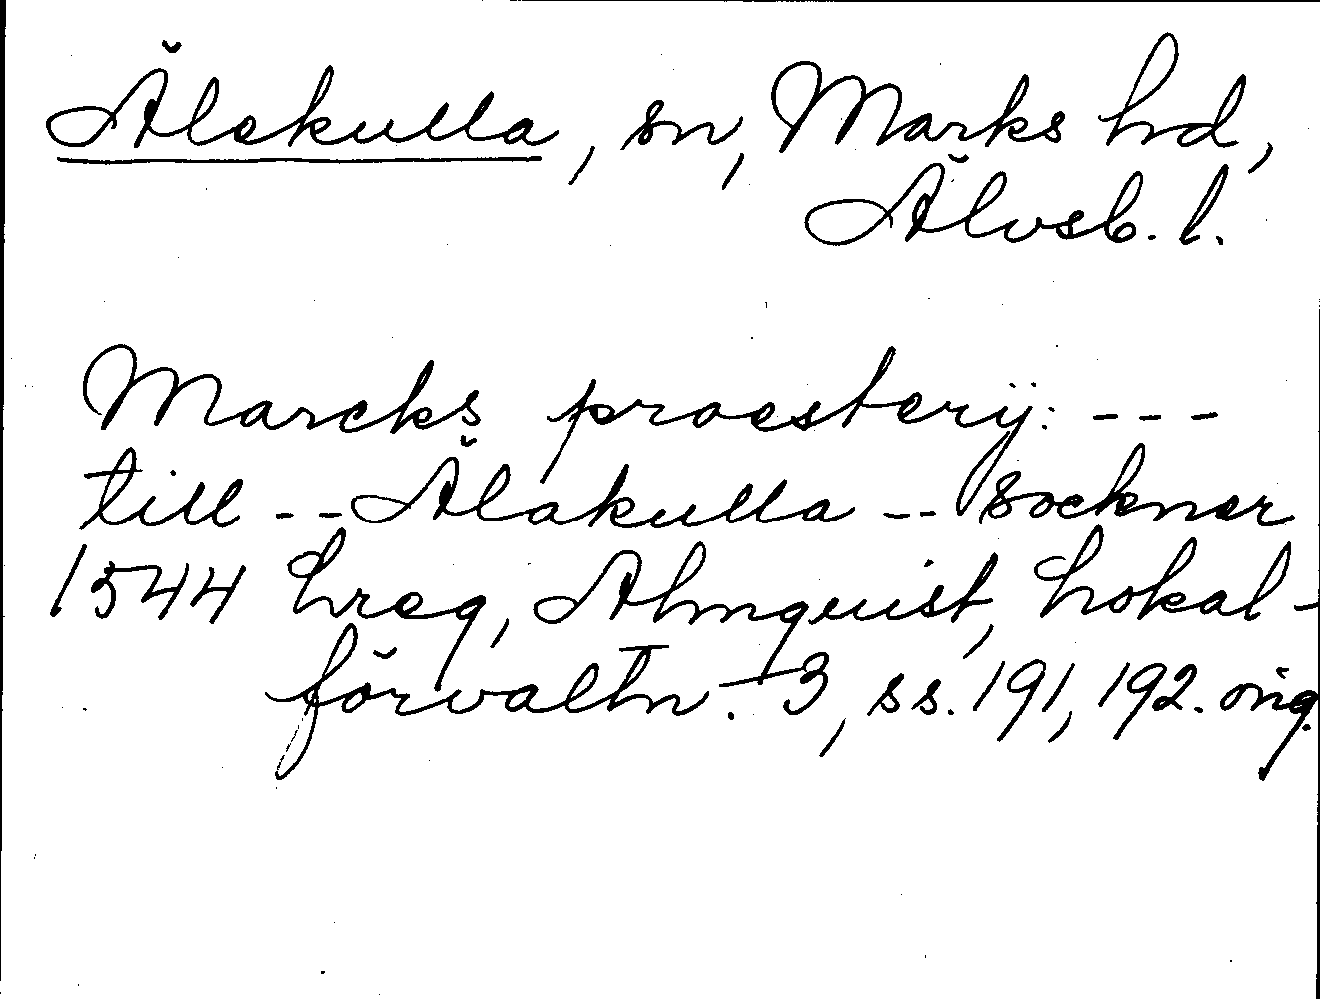 Älekulla, sn, Marks hd,
Älvsb. l.
Marcks proesterij: ---
till -- Älakulla -- sockner
1544 hreg, Almquist, Lokal-
förvaltn. 3, ss. 191, 192. orig.